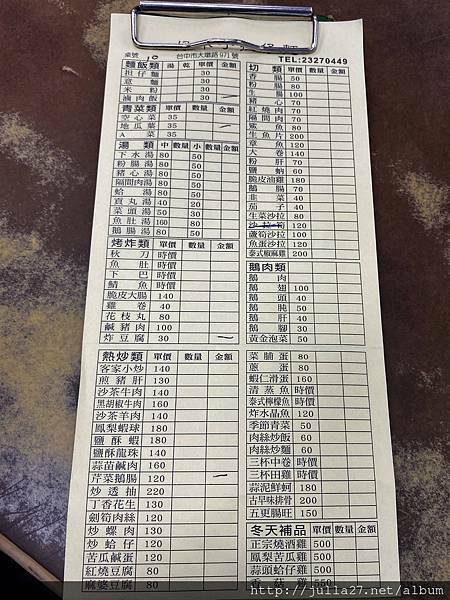 桌號 10
台中市大墩路971號
TEL:23270449
麵飯類 湯 乾 單價 金額
担仔麵 30
意麵 30
米粉 30
滷肉飯 30 一
青菜類 單價 數量 金額
空心菜 35
地瓜葉 35 一
A菜 35
湯類 中 數量 小 數量 金額
下水湯 80 50
粉腸湯 80 50
豬心湯 80 50
隔間肉湯 80 50
蛤湯 80 50
貢丸湯 40 20
菜頭湯 50 30
魚肚湯 160 80
鵝腸湯 80 50
烤炸類 單價 數量 金額
秋刀 時價
魚肚 時價
下巴 時價
鯖魚 時價
脆皮大腸 140
雞卷 40
花枝丸 80
鹹豬肉 100
炸豆腐 30 一
熱炒類 單價 數量 金額
客家小炒 140
煎豬肝 130
沙茶牛肉 140
黑胡椒牛肉 160
沙茶羊肉 140
鳳梨蝦球 180
鹽酥蝦 180
鹽酥龍珠 140
蒜苗鹹肉 160
芹菜鵝腸 120 一
炒透抽 220
丁香花生 130
劍筍肉絲 120
炒螺肉 130
炒蛤仔 120
苦瓜鹹蛋 120
紅燒豆腐 80
麻婆豆腐 80
切類 單價 數量 金額
香腸 50
粉腸 80
生腸 100
豬心 70
紅燒肉 70
隔間肉 70
鯊魚 80
生魚片 200
章魚 120
大卷 140
粉肝 70
鹽蚋 60
脆皮油雞 180
鵝腸 70
韭菜 40
茄子 40
生菜沙拉 80
沙拉筍 120
蘆筍沙拉 100
魚蛋沙拉 120
泰式椒麻雞 200
鵝肉類
鵝肉
鵝翅 100
鵝頭 40
鵝肫 50
鵝肝 40
鵝腳 30
黃金泡菜 50
菜脯蛋 80
蔥蛋 80
蝦仁滑蛋 160
清蒸魚 時價
泰式檸檬魚 時價
炸水晶魚 120
季節青菜 50
肉絲炒飯 60
肉絲炒麵 60
三杯中卷 時價
三杯田雞 時價
蒜泥鮮蚵 180
古早味排骨 200
五更腸旺 150
冬天補品 單價 數量 金額
正宗燒酒雞 500
鳳梨苦瓜雞 500
蒜頭蛤仔雞 550
香菇雞 550
http://julla27.net/album